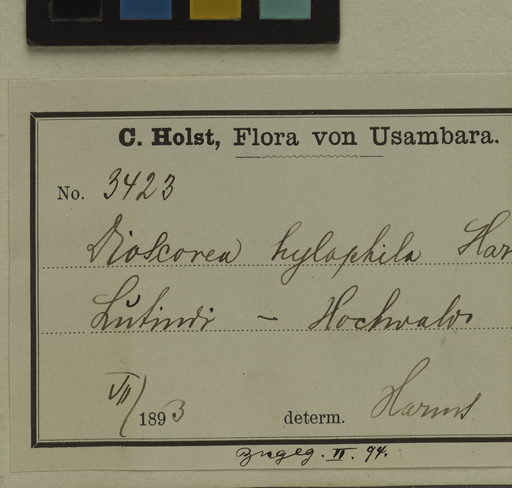 C. Holst, Flora von Usambara.
No. 3423
Dioscorea hylophila Har
Lutindi – Hochwald
VII/1893 determ. Harms
zugeg. II. 94.